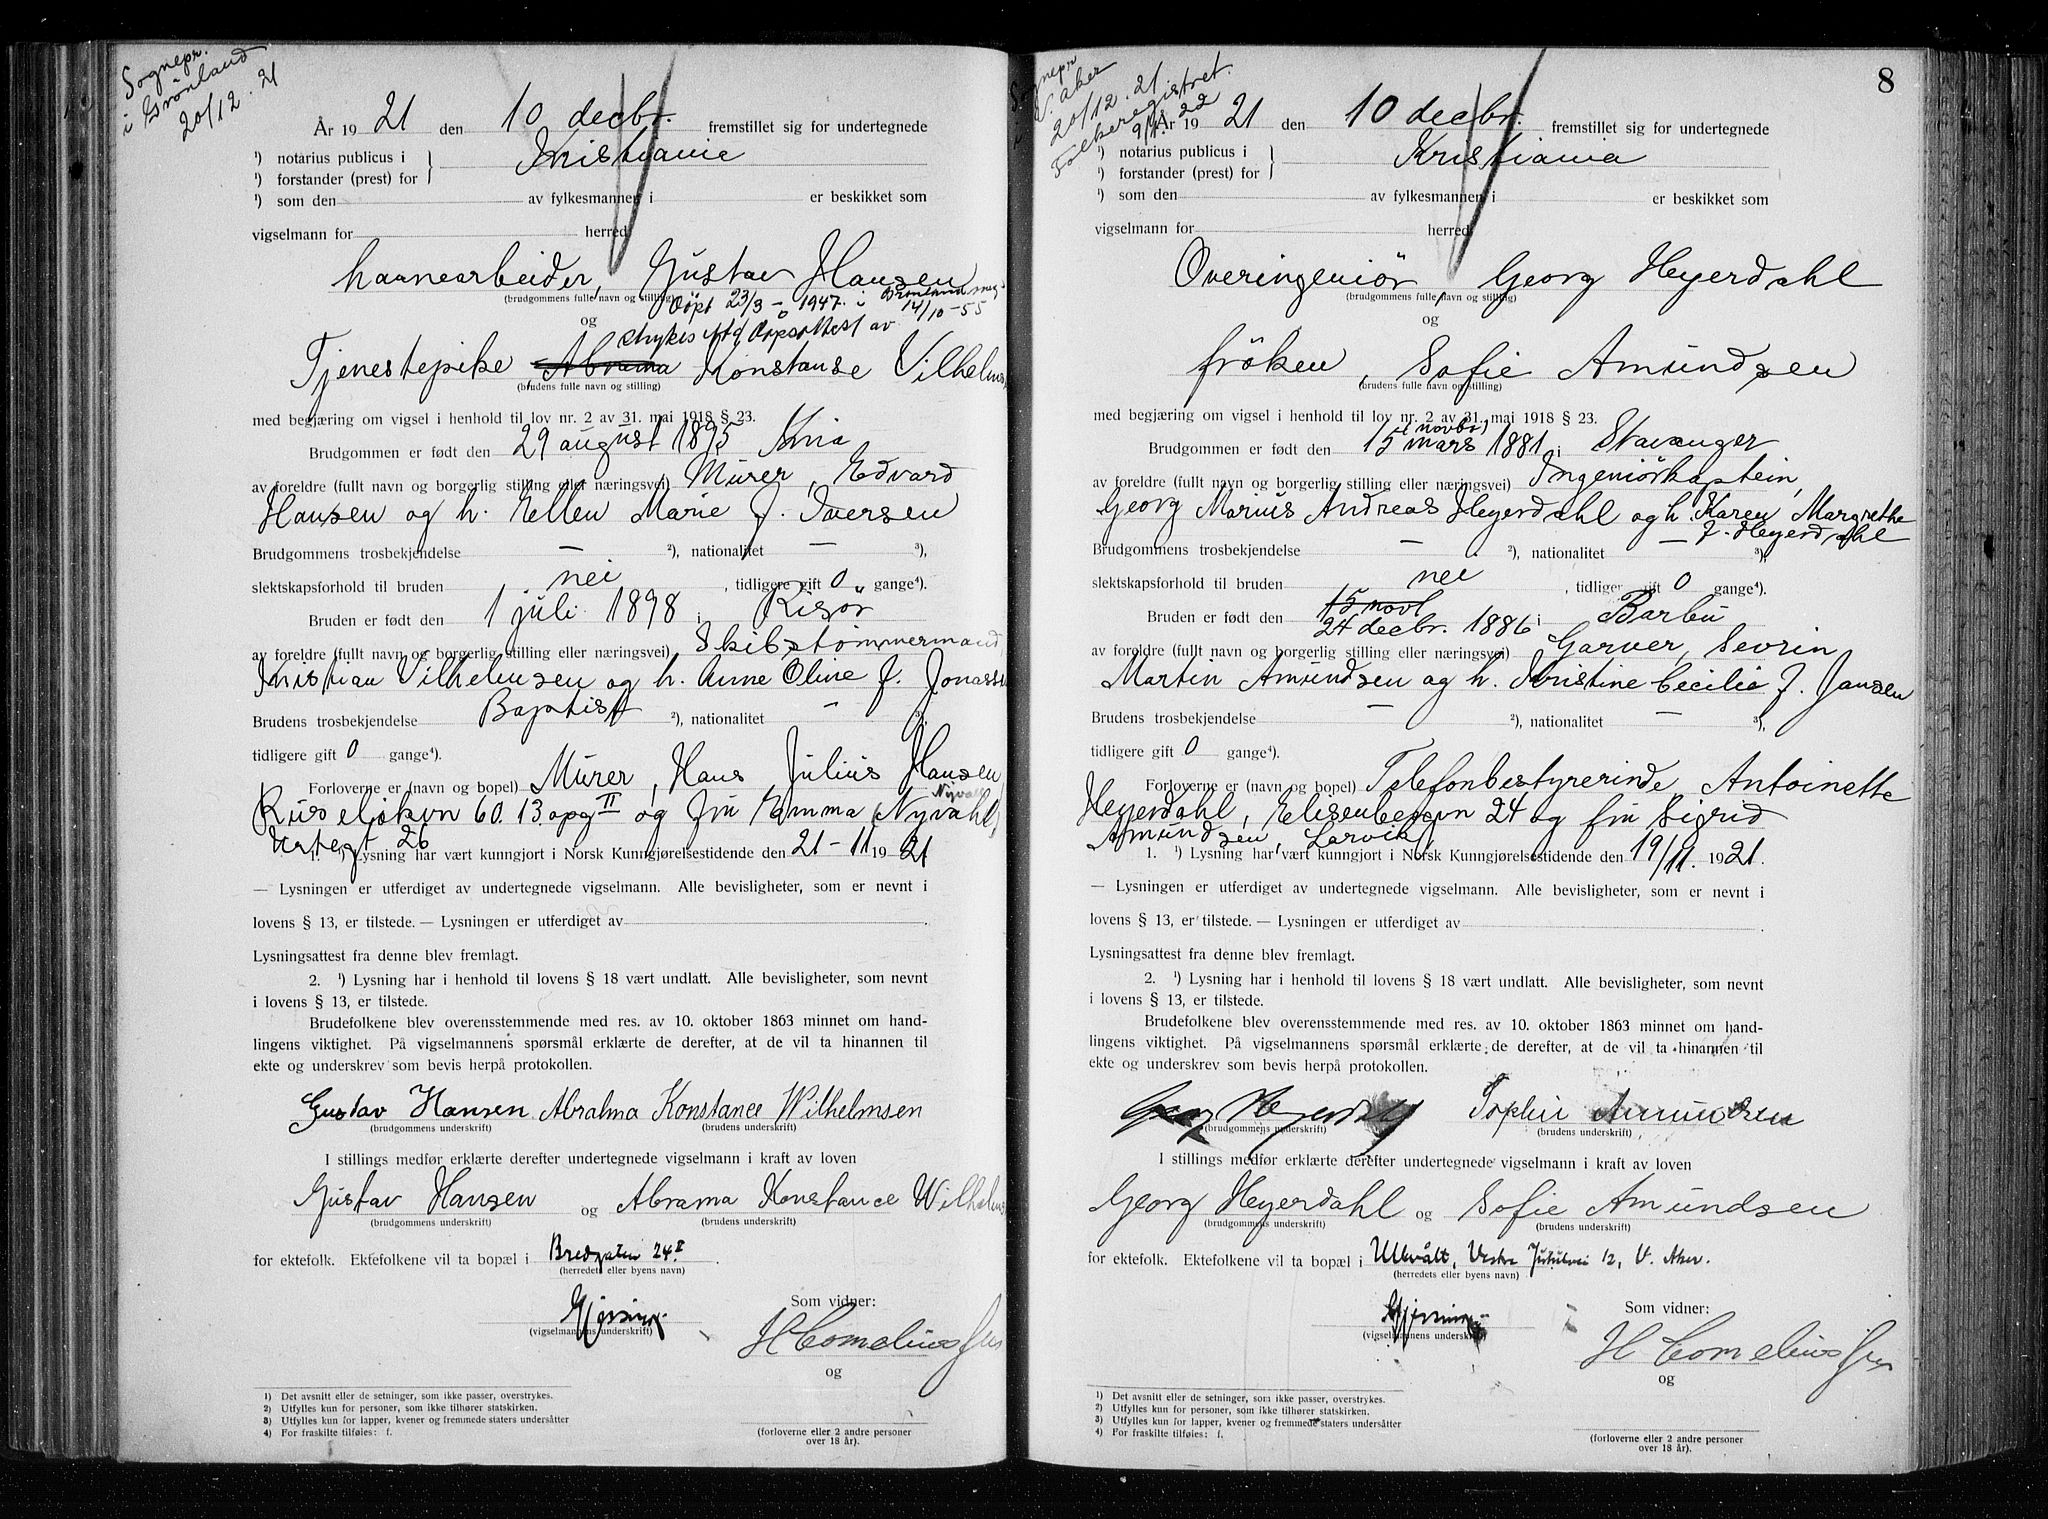 Sognepr.
i Grønland
20/12. 21
År 1921 den 10 decbr. fremstillet sig for undertegnede
¹) notarius publicus i Kristiania
¹) forstander (prest) for
¹) som den av fylkesmannen i er beskikket som
vigselmann for herred
havnearbeider, Gustav Hansen
(brudgommens fulle navn og stilling)
Döpt 23/3 - 1947 i Grønland
14/10-55
og
strykes iflg dåpsattest av
Tjenestepike Abrama Konstanse Vilhelms
(brudens fulle navn og stilling)
med begjæring om vigsel i henhold til lov nr. 2 av 31. mai 1918 § 23.
Brudgommen er født den 29 august 1895 i Kria
av foreldre (fullt navn og borgerlig stilling eller næringsvei) Murer, Edvard
Hansen og h. Ellen Marie f. Iversen
Brudgommens trosbekjendelse — ²), nationalitet — ³),
slektskapsforhold til bruden nei, tidligere gift 0 gange⁴).
Bruden er født den 1 juli 1898 i Risör
av foreldre (fullt navn og borgerlig stilling eller næringsvei) Skibstømmermand
Kristian Vilhelmsen og h. Anne Oline f. Jonasse
Brudens trosbekjendelse Baptist ²), nationalitet - ³),
tidligere gift 0 gange⁴).
Forloverne er (navn og bopel) Murer, Hans Julius Hansen
Nyvall
Ruseløkvn 60. 13. opg II og fru Emma (Nyvahl)
Urtegt 26
1. ¹) Lysning har vært kunngjort i Norsk Kunngjørelsestidende den 21-11 1921
— Lysningen er utferdiget av undertegnede vigselmann. Alle bevisligheter, som er nevnt i
lovens § 13, er tilstede. — Lysningen er utferdiget av
Lysningsattest fra denne blev fremlagt.
2. ¹) Lysning har i henhold til lovens § 18 vært undlatt. Alle bevisligheter, som nevnt
i lovens § 13, er tilstede.
Brudefolkene blev overensstemmende med res. av 10. oktober 1863 minnet om hand-
lingens viktighet. På vigselmannens spørsmål erklærte de derefter, at de vil ta hinannen til
ekte og underskrev som bevis herpå protokollen.
Gustav Hansen Abralma Konstance Wilhelmsen
(brudgommens underskrift) (brudens underskrift)
I stillings medfør erklærte derefter undertegnede vigselmann i kraft av loven
Gustav Hansen og Abrama Konstance Wilhelms
(brudgommens underskrift) (brudens underskrift)
for ektefolk. Ektefolkene vil ta bopæl i Bredgaten 24 II.
(herredets eller byens navn)
Som vidner:
(vigselmannens underskrift)
H Cornelius Jen
og
1) Det avsnitt eller de setninger, som ikke passer, overstrykes.
2) Utfylles kun for personer, som ikke tilhører statskirken.
3) Utfylles kun for lapper, kvener og fremmede staters undersåtter
4) For fraskilte tilføies: f.
(forloverne eller 2 andre personer
over 18 år).
8
V. Aker
20/12. 21
Folkeregistret.
År 1921 den 10 decbr. fremstillet sig for undertegnede
¹) notarius publicus i Kristiania
¹) forstander (prest) for
¹) som den av fylkesmannen i er beskikket som
vigselmann for herred
Overingeniör, Georg Heyerdahl
(brudgommens fulle navn og stilling)
og
fröken, Sofie Amundsen
(brudens fulle navn og stilling)
med begjæring om vigsel i henhold til lov nr. 2 av 31. mai 1918 § 23.
novbr.
Brudgommen er født den 15 mars 1881 i Stavanger
av foreldre (fullt navn og borgerlig stilling eller næringsvei) Ingeniörkaptein,
Georg Marius Andreas Heyerdahl og h. Karen Margrethe
f. Heyerdahl
Brudgommens trosbekjendelse — ²), nationalitet — ³),
slektskapsforhold til bruden nei, tidligere gift 0 gange⁴).
15 novb
Bruden er født den 24 decbr. 1886 i Barbu
av foreldre (fullt navn og borgerlig stilling eller næringsvei) Garver, Sevrin
Martin Amundsen og h. Kristine Cecilie f. Jansen
Brudens trosbekjendelse — ²), nationalitet — ³),
tidligere gift 0 gange⁴).
Forloverne er (navn og bopel) Telefonbestyrerinde Antoinette
Heyerdahl, Elisenbergvn 24 og fru Sigrid
Amundsen, Larvik
1. ¹) Lysning har vært kunngjort i Norsk Kunngjørelsestidende den 19/11. 1921.
— Lysningen er utferdiget av undertegnede vigselmann. Alle bevisligheter, som er nevnt i
lovens § 13, er tilstede. — Lysningen er utferdiget av
Lysningsattest fra denne blev fremlagt.
2. ¹) Lysning har i henhold til lovens § 18 vært undlatt. Alle bevisligheter, som nevnt
i lovens § 13, er tilstede.
Brudefolkene blev overensstemmende med res. av 10. oktober 1863 minnet om hand-
lingens viktighet. På vigselmannens spørsmål erklærte de derefter, at de vil ta hinannen til
ekte og underskrev som bevis herpå protokollen.
Georg Heyerdahl Sophie Amundsen
(brudgommens underskrift) (brudens underskrift)
I stillings medfør erklærte derefter undertegnede vigselmann i kraft av loven
Georg Heyerdahl og Sofie Amundsen
(brudgommens underskrift) (brudens underskrift)
for ektefolk. Ektefolkene vil ta bopæl i Ullevålt, Vestre Jutulvei 12, V. Aker.
(herredets eller byens navn)
Som vidner:
(vigselmannens underskrift)
H Cornelius Jen
og
1) Det avsnitt eller de setninger, som ikke passer, overstrykes.
2) Utfylles kun for personer, som ikke tilhører statskirken.
3) Utfylles kun for lapper, kvener og fremmede staters undersåtter
4) For fraskilte tilføies: f.
(forloverne eller 2 andre personer
over 18 år).